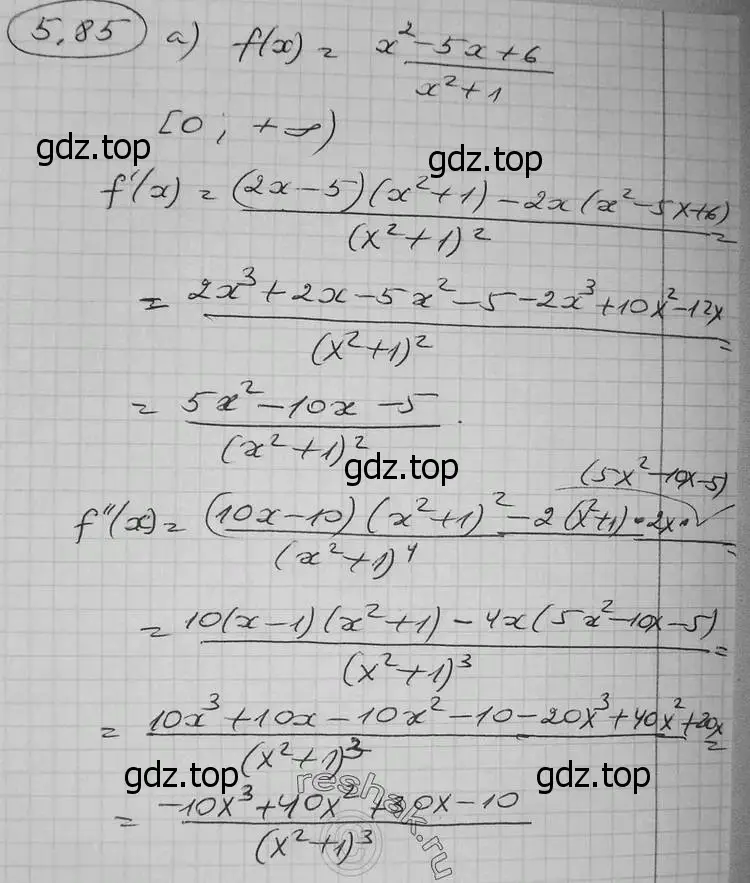 5.85 а) f(x) = (x² - 5x + 6)/(x² + 1)
[0; +∞)
gdz.top gdz.top
f'(x) = ((2x - 5)(x² + 1) - 2x(x² - 5x + 6))/(x² + 1)² =
= (2x³ + 2x - 5x² - 5 - 2x³ + 10x² - 12x)/(x² + 1)² =
= (5x² - 10x - 5)/(x² + 1)².
gdz.top
(5x² - 10x - 5)
f''(x) = ((10x - 10)(x² + 1)² - 2(x² + 1)·2x·)/(x² + 1)⁴ =
= (10(x - 1)(x² + 1) - 4x(5x² - 10x - 5))/(x² + 1)³ =
= (10x³ + 10x - 10x² - 10 - 20x³ + 40x² + 20x)/(x² + 1)³ =
gdz.top gdz.top
= (-10x³ + 40x² + 30x - 10)/(x² + 1)³
reshak.ru